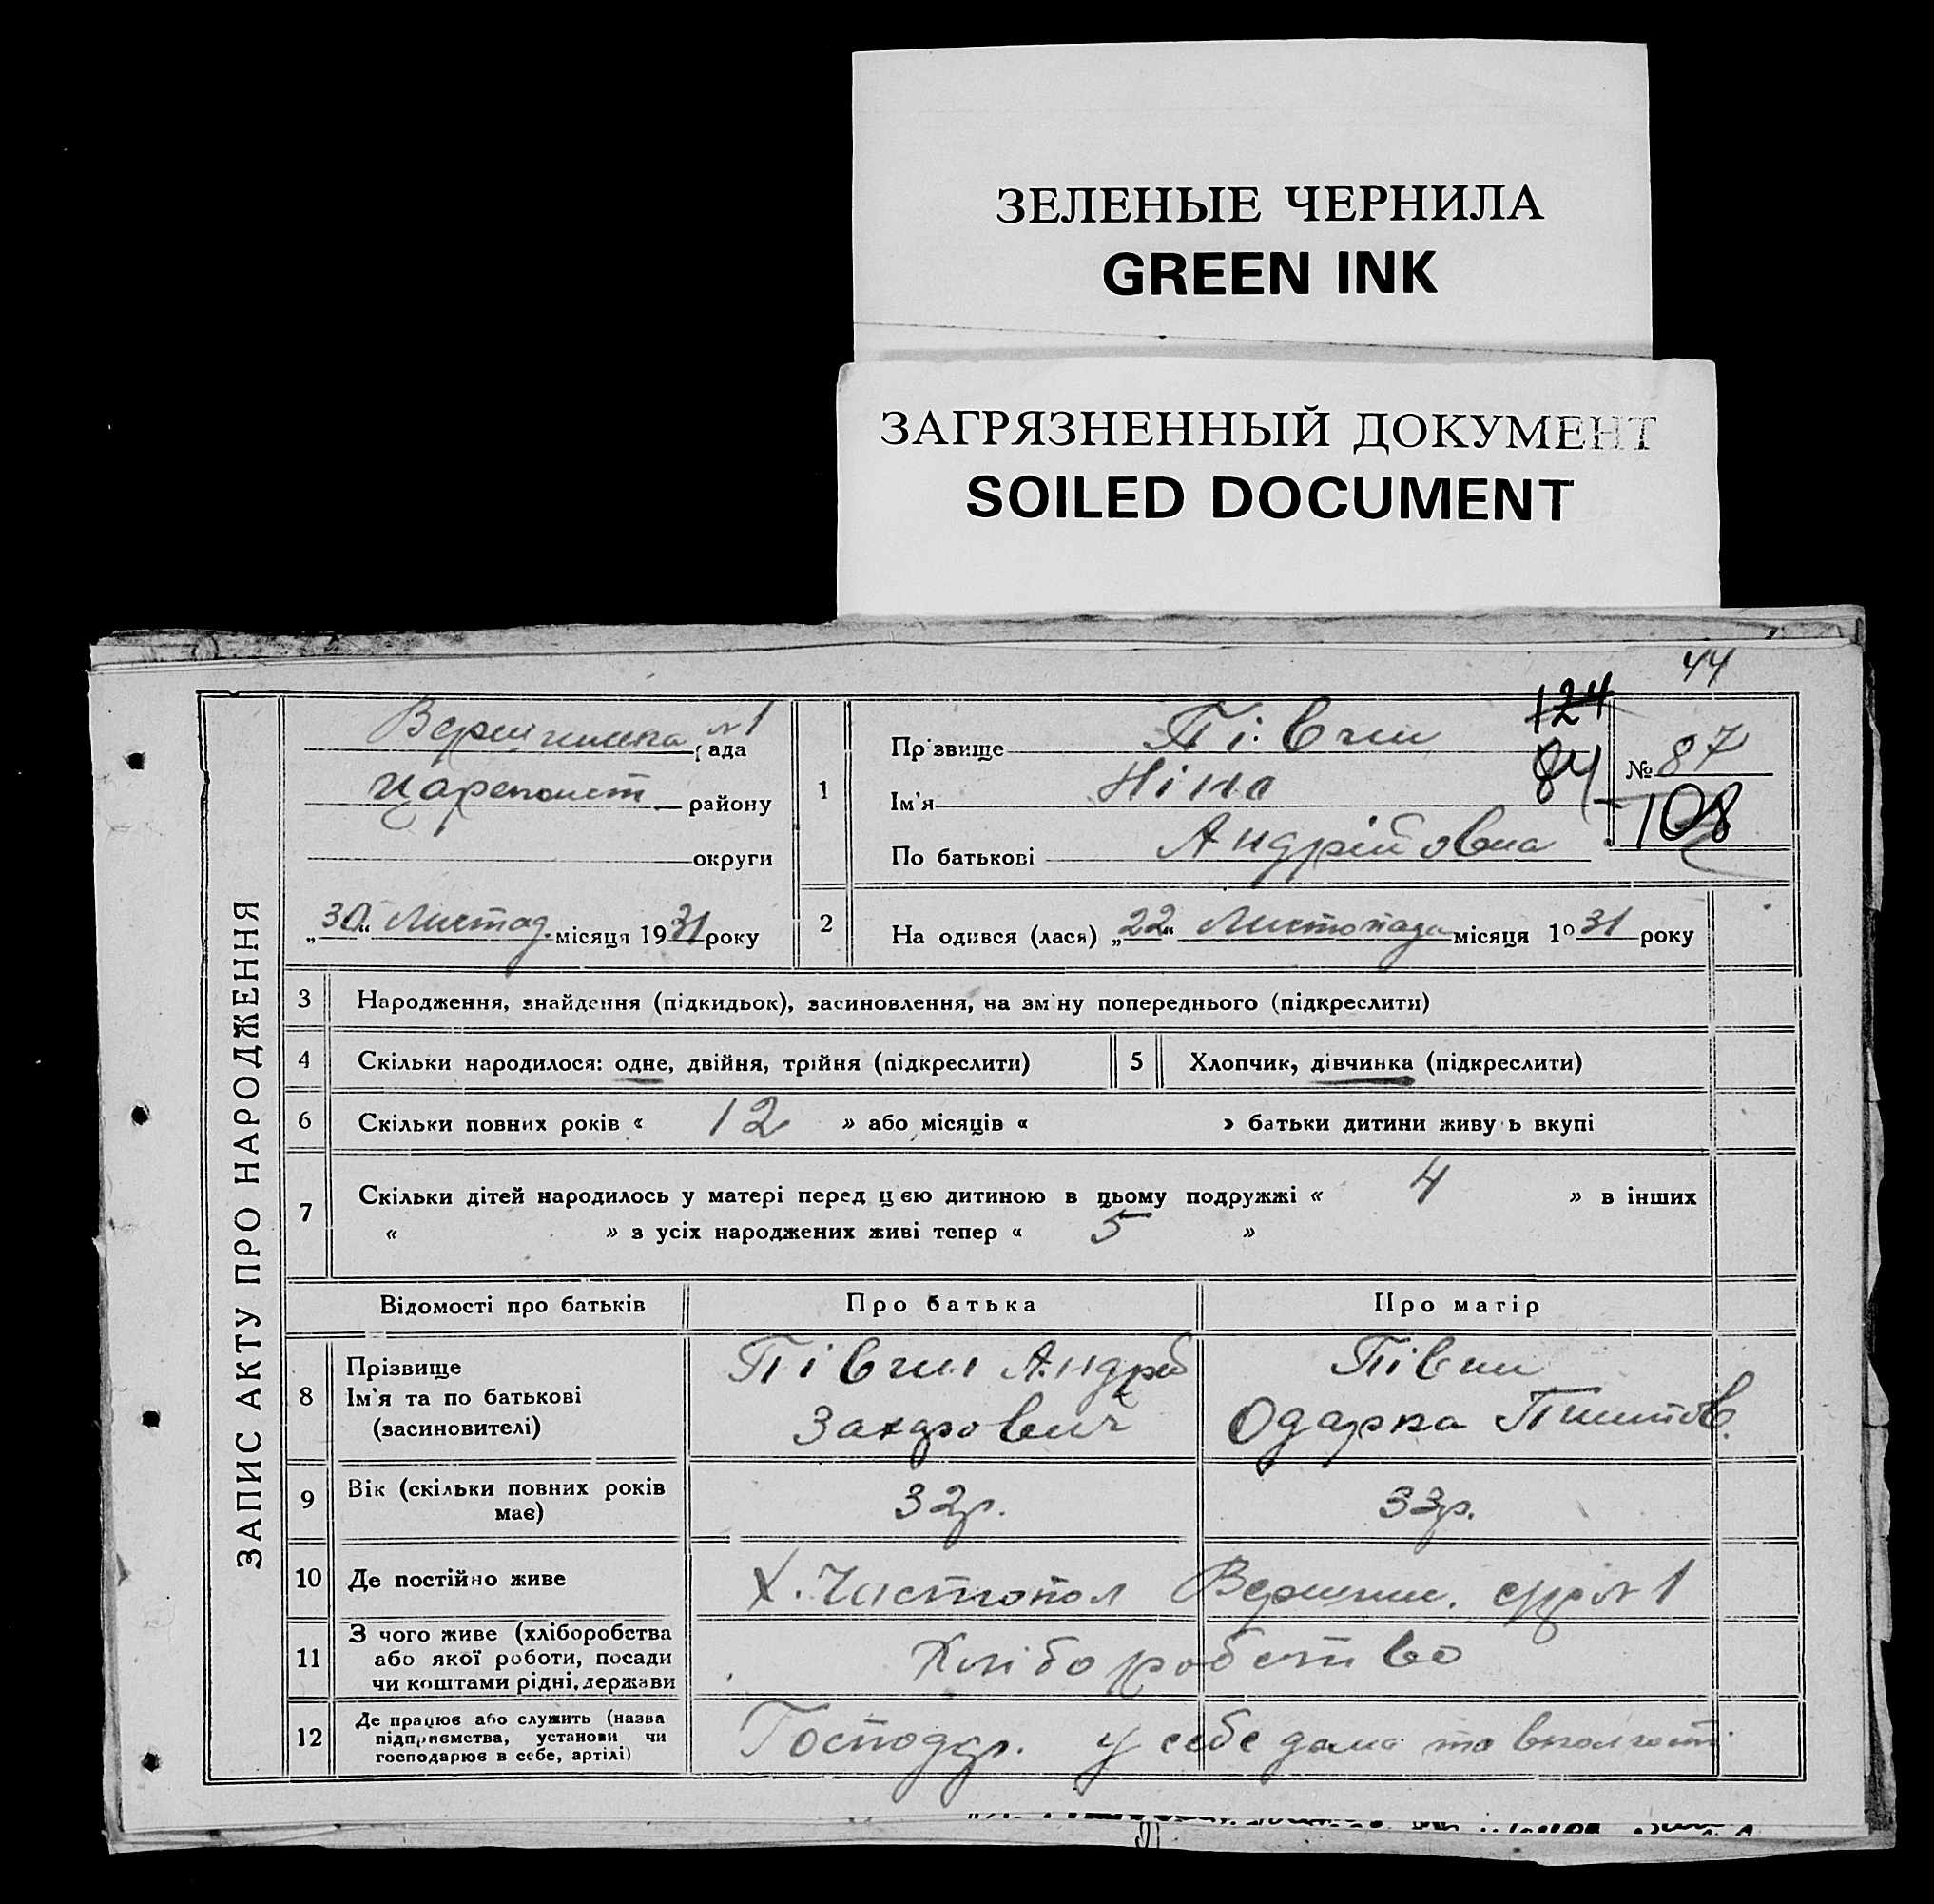 ЗЕЛЕНЫЕ ЧЕРНИЛА
GREEN INK
ЗАГРЯЗНЕННЫЙ ДОКУМЕНТ
SOILED DOCUMENT
44
ЗАПИС АКТУ ПРО НАРОДЖЕННЯ
№1
рада
району
округи
„30“ Листопад. місяця 1931 року
1
Прізвище Півчин
Ім'я Ніна
По батькові Андрійовна
124
84
№ 87
108
2 Народився (лася) „22“ Листопада місяця 1931 року
3 Народження, знайдення (підкидьок), засиновлення, на зміну попереднього (підкреслити)
4 Скільки народилося: одне, двійня, трійня (підкреслити) 5 Хлопчик, дівчинка (підкреслити)
6 Скільки повних років « 12 » або місяців « » батьки дитини живуть вкупі
7 Скільки дітей народилось у матері перед цією дитиною в цьому подружжі « 4 » в інших
« » з усіх народжених живі тепер « 5 »
Відомості про батьків Про батька Про матір
8 Прізвище Півчин Андрій Півчин
Ім'я та по батькові Захарович Одарка
(засиновителі)
9 Вік (скільки повних років має) 32р. 33р.
10 Де постійно живе Х. Чистопол Вершин. с/р №1
11 З чого живе (хліборобства
або якої роботи, посади Хліборобство
чи коштами рідні, держави
12 Де працює або служить (назва
підприємства, установи чи Господар. у себе дома та
господарює в себе, артілі)